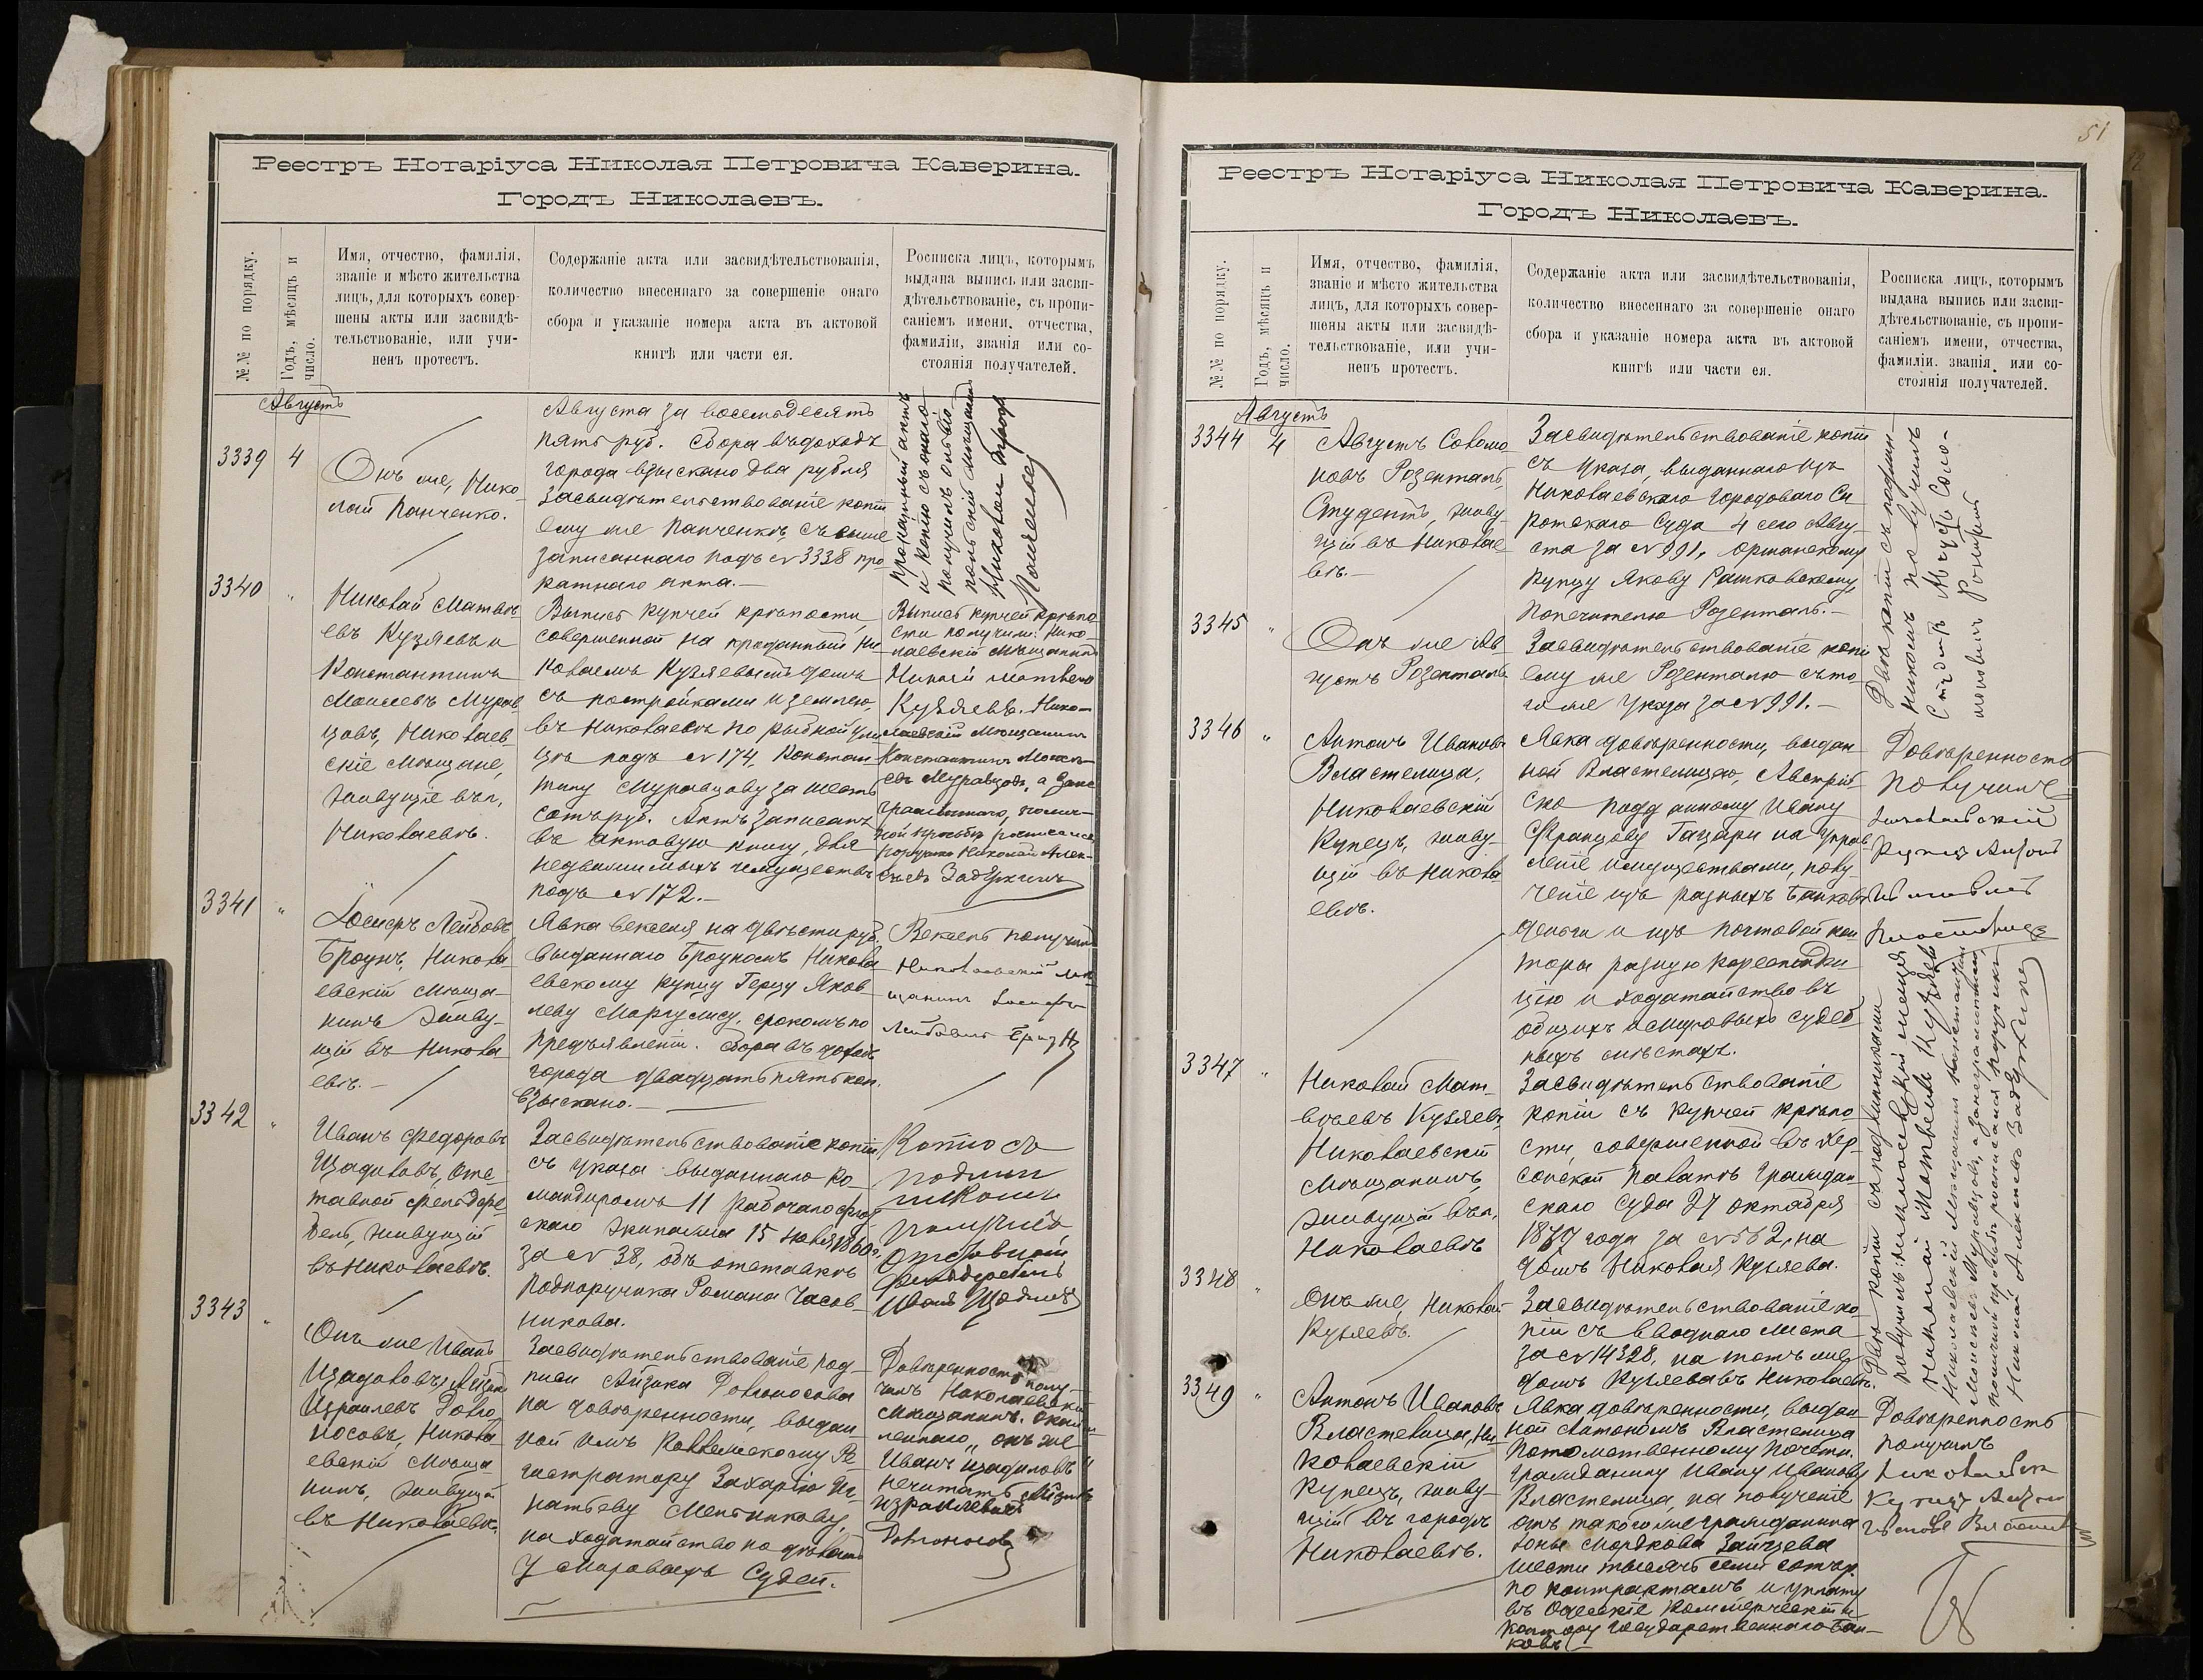 Реестръ Нотаріуса Николая Петровича Каверина.
Городъ Николаевъ.
№№ по порядку.
Годъ, мѣсяцъ и
число.
Имя, отчество, фамилія,
званіе и мѣсто жительства
лицъ, для которыхъ совер-
шены акты или засвидѣ-
тельствованіе, или учи-
ненъ протестъ.
Содержаніе акта или засвидѣтельствованія,
количество внесеннаго за совершеніе онаго
сбора и указаніе номера акта въ актовой
книгѣ или части ея.
Росписка лицъ, которымъ
выдана выпись или засви-
дѣтельствованіе, съ пропи-
саніемъ имени, отчества,
фамиліи, званія или со-
стоянія получателей.
Августъ
Августа за восемьдесятъ
пять руб. Сбора въ доходъ
города взыскано два рубля
3339
4
Онъ же, Нико-
лай Панченко.
Засвидѣтельствованіе копіи
ему же Панченко, съ выше
записаннаго подъ № 3338 про
катнаго акта.
Прокатный актъ
и копію съ онаго
получилъ
Николай
Панченко
3340
"
Николай Матвѣ-
евъ Кузяевъ и
Константинъ
Моисеевъ Мурав-
цовъ, Николаев-
скіе Мѣщане,
живущіе въ г.
Николаевѣ.
Выпись купчей крѣпости,
совершенной на проданный Ни-
колаемъ Кузяевымъ домъ
съ постройками и землею,
въ Николаевѣ по Рыбной ули
цѣ подъ № 174, Констан-
тину Муравцову за шесть
сотъ руб. Актъ записанъ
въ актовую книгу, для
недвижимыхъ имуществъ
подъ № 172.
Выпись купчей крѣпо
сти получили: Нико-
лаевскій Мѣщанинъ
Николай Матвеевъ
Кузяевъ. Нико-
лаевскій Мѣщанинъ
Константинъ Моисе-
евъ Муравцовъ, а за не
грамотнаго, по лич-
ной просьбѣ росписался
поручикъ Николай Алек-
сѣевъ Задеркинъ
3341
"
Іосифъ Лейбовъ
Броунъ, Никола-
евскій Мѣща-
нинъ живу-
щій въ Никола-
евѣ.
Явка векселя на двѣсти руб.
выданнаго Броуномъ Никола
евскому купцу Герцу Яков
леву Маргулису, срокомъ по
предъявленіи. Сбора въ доходъ
города двадцать пять коп.
взыскано.
Вексель получилъ
Николаевскій мѣ-
щанинъ Іосифъ
Лейбовичъ Броунъ
3342
"
Иванъ Федоровъ
Щадиловъ, от-
тавной фельдфе-
бель, живущій
въ Николаевѣ.
Засвидѣтельствованіе копіи
съ указа выданнаго ко-
мандиромъ 11 рабочаго флот
скаго экипажа 15 Іюня 1860 г.
за № 38, объ отставкѣ
подпоручика Романа Часов-
никова.
Копію съ
подлин
никомъ
получилъ
Отставной
фельдфебель
Иванъ Щадиловъ
3343
"
Онъ же Иванъ
Щадиловъ, Айзикъ
Израилевъ Долго
носовъ, Никола-
евскій Мѣща-
нинъ, живущій
въ Николаевѣ.
Засвидѣтельствованіе под-
писи Айзика Долгоносова
на довѣренности, выдан-
ной имъ Коллежскому Ре-
гистратору Захарію Иг-
натьеву Мельникову,
на ходатайство по дѣламъ
у Мировыхъ Судей.
Довѣренность полу-
чилъ Николаевскій
Мѣщанинъ.
"онъ же
Иванъ Щадиловъ"
не читать Айзикъ
Израилевичъ
Долгоносов
51
Реестръ Нотаріуса Николая Петровича Каверина.
Городъ Николаевъ.
№№ по порядку.
Годъ, мѣсяцъ и
число.
Имя, отчество, фамилія,
званіе и мѣсто жительства
лицъ, для которыхъ совер-
шены акты или засвидѣ-
тельствованіе, или учи-
ненъ протестъ.
Содержаніе акта или засвидѣтельствованія,
количество внесеннаго за совершеніе онаго
сбора и указаніе номера акта въ актовой
книгѣ или части ея.
Росписка лицъ, которымъ
выдана выпись или засви-
дѣтельствованіе, съ пропи-
саніемъ имени, отчества,
фамиліи. званія, или со-
стоянія получателей.
Августъ
3344
4
Августъ Соломо
новъ Розенталь,
Студентъ, живу-
щій въ Николае-
вѣ.
Засвидѣтельствованіе копіи
съ указа, выданнаго изъ
Николаевскаго Городоваго Си
ротскаго Суда 4 сего Авгу-
ста за № 991, Орманскому
купцу Якову Рашковскому,
попечителю Розенталь.
Двѣ копіи съ подлин-
никомъ получилъ
Студентъ Августъ Соло-
моновичъ Розенталь
3345
"
Онъ же Ав-
густъ Розенталь
Засвидѣтельствованіе копіи
ему же Розенталю съ то-
го же указа за № 991.
3346
"
Антонъ Ивановъ
Властелица,
Николаевскій
Купецъ, живу-
щій въ Никола
евѣ.
Явка довѣренности, выдан
ной Властелицею, Австрій-
ско подданному Ивану
Францову Гацари на управ
леніе имуществами, полу-
ченіе изъ разныхъ Банковъ
деньги и изъ почтовой кон
торы разную кореспонден
цію и ходатайство въ
общихъ и мировыхъ судеб
ныхъ мѣстахъ.
Довѣренность
получилъ
Николаевскій
Купецъ Антонъ
Ивановъ
Властелица
3347
"
Николай Мат-
вѣевъ Кузяевъ,
Николаевскій
Мѣщанинъ,
живущій въ г.
Николаевѣ
Засвидѣтельствованіе
копіи съ купчей крѣпо
сти, совершенной въ Хер-
сонской Палатѣ Граждан
скаго Суда 27 октября
1839 года за № 562, на
домъ Николая Кузяева.
Двѣ копіи съ подлинниками
получилъ: Николаевскій мещан
Николай Матвеевъ Кузяевъ
Николаевскій Мѣщанинъ Константинъ
Моисеевъ Муравцовъ, а за неграмотнаго,
по личной просьбѣ росписался поручикъ
Николай Алексѣевъ Задеркинъ
3348
"
Онъ же, Николай
Кузяевъ.
Засвидѣтельствованіе ко
піи съ вводнаго листа
за № 14328, на тотъ же
домъ Кузяева въ Николаевѣ.
3349
"
Антонъ Ивановъ
Властелица, Ни-
колаевскій
Купецъ, живу-
щій въ городѣ
Николаевѣ.
Явка довѣренности, выдан-
ной Антономъ Властелица
Потомственному Почетн.
гражданину Ивану Иванову
Властелица, на полученіе
отъ такого же гражданина
Зайцева
шести тысячъ семи сотъ р.
по контрактамъ и уплату
въ Одесскіе Коммерческій и
контору Государственнаго Бан-
ковъ
Довѣренность
получилъ
Николаевск
Купецъ Антон
Ивановъ Властелица